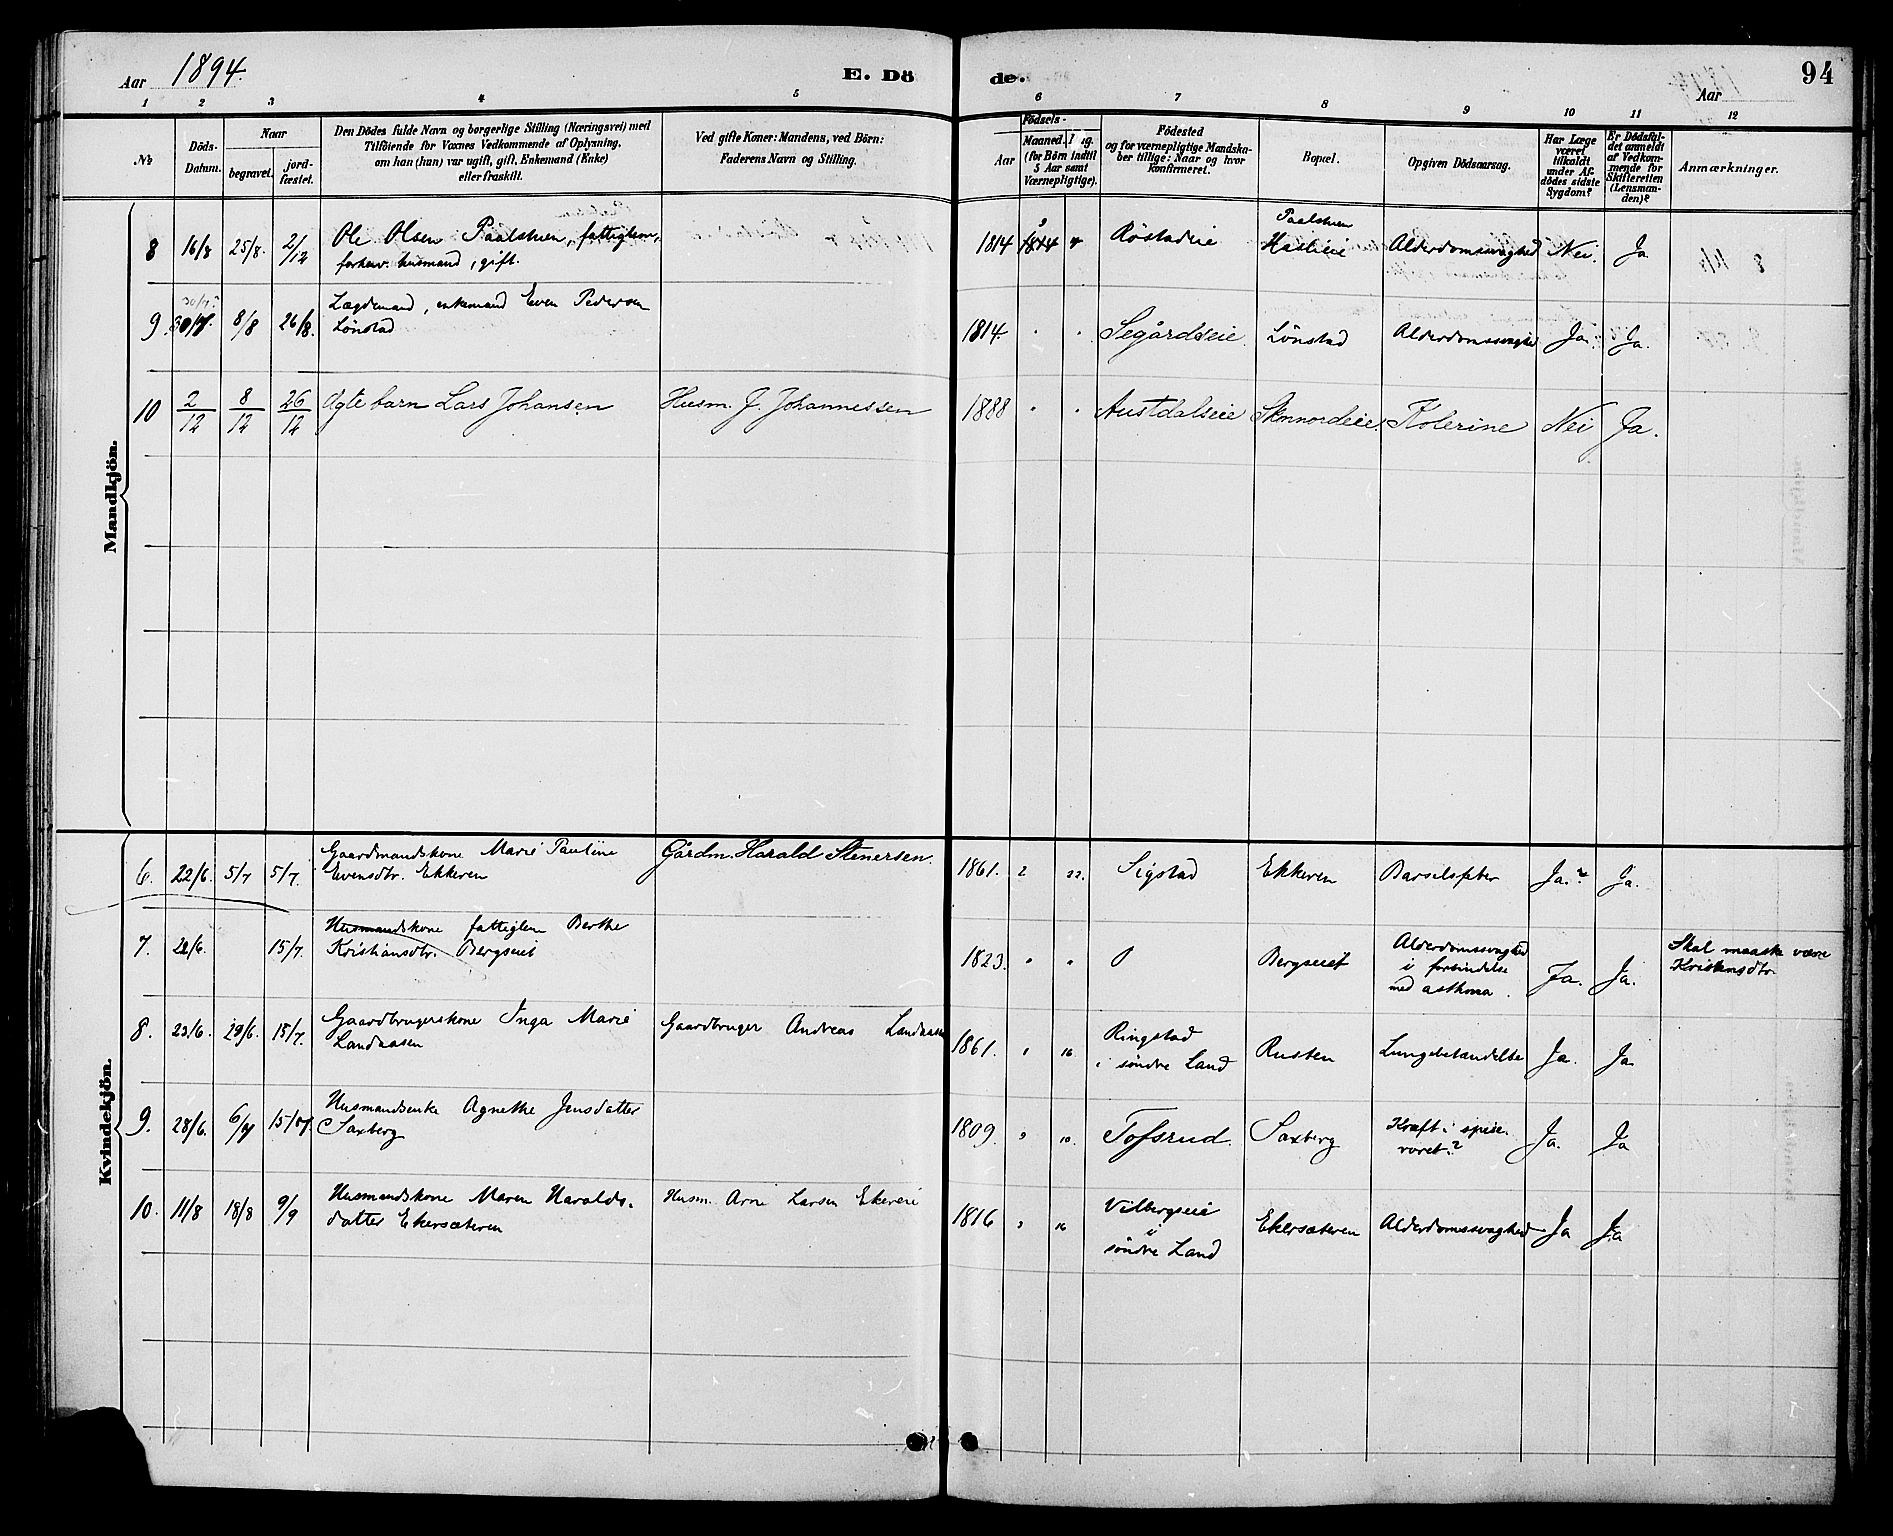 Aar 1894. E. Dö de. Aar 94
1 2 3 4 5 6 7 8 9 10 11 12
No
Döds-Datum.
Naar
begravet. jord-fæstet.
Den Dödes fulde Navn og borgerlige Stilling (Næringsvei) med
Tilföiende for Voxnes Vedkommende af Oplysning,
om han (hun) var ugift, gift, Enkemand (Enke)
eller fraskilt.
Ved gifte Koner: Mandens, ved Börn:
Faderens Navn og Stilling.
Födsels-
Aar
Maaned.
(for Börn indtil
5 Aar samt
Værnepligtige).
Födested
og for værnepligtige Mandska-
ber tillige: Naar og hvor
konfirmeret.
Bopæl.
Opgiven Dödsaarsag.
Har Læge
været
tilkaldt
under Af-
dödes sidste
Sygdom?
Er Dödsfal-
det anmeldt
af Vedkom-
mende for
Skifteretten
(Lensman-
den)?
Anmærkninger.
Mandkjön.
8 16/8 25/8. 2/12 Ole Olsen Paalstuen, fattiglem,
forhenv. husmand, gift.
1814 Röstadeie Paalstuen
Hasleeie Alderdomssvaghed Nei. Ja
30/7
9. 30/7. 8/8 26/8. Lægdemand, enkemand Even Pedersen
Lönstad
1814. " " Segårdseie Lönstad Alderdomssvaghed Ja. Ja.
10 2/12 8/12 26/12 Ægte barn Lars Johansen Husm. J. Johannessen 1888 " " Austdalseie Skonnordeie. Kolerine Nei Ja.
Kvindekjön.
6. 22/6. 5/7 5/7. Gaardmandskone Marie Pauline
Evensdtr. Ekkeren
Gårdm. Harald Stenersen. 1861. 2 22. Sigstad Ekkeren Barselsfeber Ja. Ja.
7. 22/6. 15/7. Husmandskone fattiglem Berthe
Kristiansdtr. Bergseiet
1823. " " Bergseiet Alderdomssvaghed
i forbindelse
med asthma. Ja. Ja. Skal maaske være
Kristensdtr.
8. 23/6. 29/6. 15/7. Gaardbrugerskone Inga Marie
Landaasen
Gaardbruger Andreas Landaasen 1861. 16. Ringstad
i söndre Land Rusten Lungebetændelse Ja. Ja.
9. 28/6. 6/7 15/7. Husmandsenke Agnethe Jensdatter
Saxberg
1809. 10. Tofsrud Saxberg Kræft i spise-
röret? Ja. Ja
10. 11/8 18/8 9/9 Husmandskone Maren Haralds-
datter Ekersæteren
Husm. Arne Larsen Ekereie 1816 16 Vilbergseie
i
söndre Land Ekersæteren Alderdomssvaghed Ja Ja